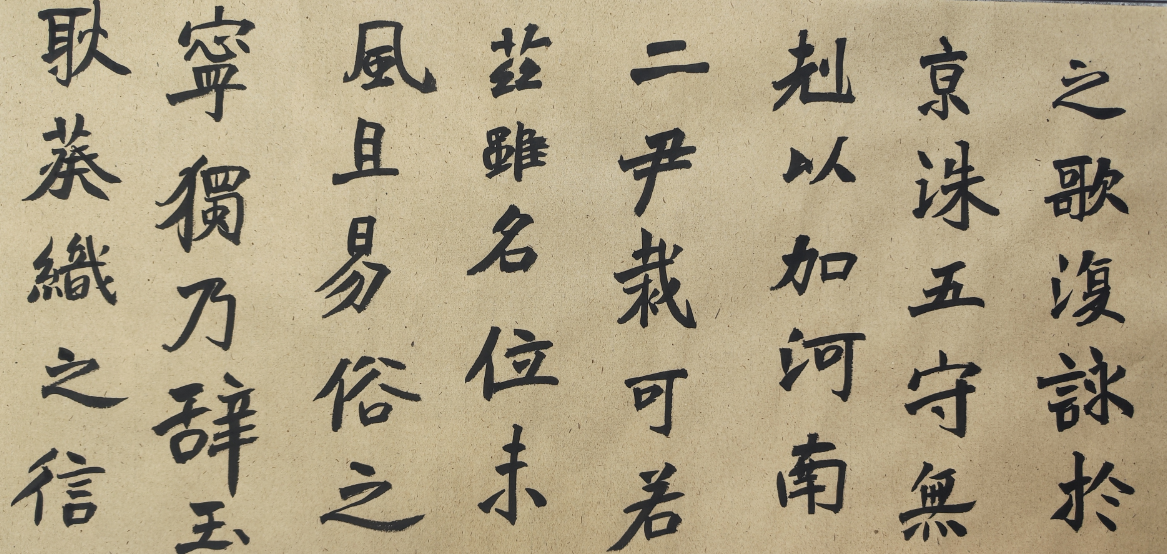 之歌復詠於
京洙五守無
剋以加河南
二尹栽可若
茲雖名位未
風且易俗之
寧獨乃辭玉
耿葵織之信